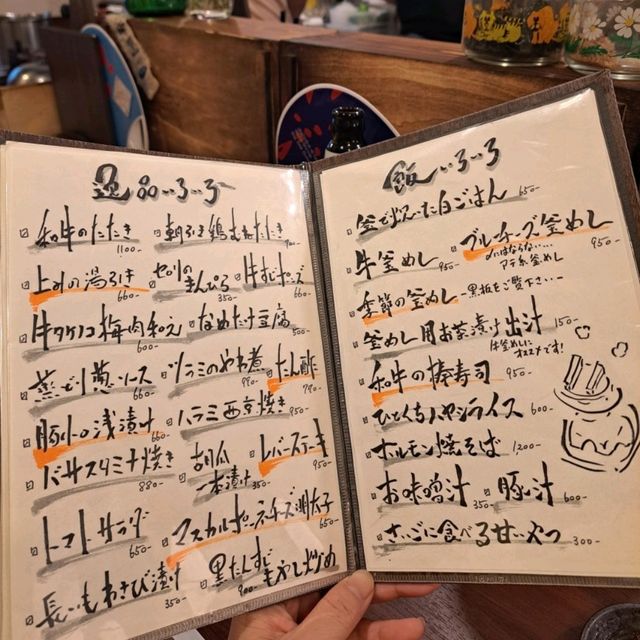 逸品いろいろ
和牛のたたき 1100-
朝引き鶏むねたたき
上みの湯引き 660-
セリのきんぴら 350-
牛すじポン酢 660-
牛タケノコ梅肉和え 600-
なめたけ豆腐 500-
蒸しどり葱ソース 660-
ツラミのやわ煮 990-
たん酢 790-
豚トロ浅漬け 660-
ハラミ西京焼き 950-
バサスタミナ焼き 880-
胡瓜一本漬け 350-
レバーステーキ 950-
トマトサラダ 650-
マスカルポーネチーズ明太子 650-
長いもわさび漬け 350-
黒たんすじもやし炒め 900-
飯いろいろ
釜で炊いた白ごはん 650-
牛釜めし 950-
ブルーチーズ釜めし 950-
〆にはならない…
アテ系釜めし
季節の釜めし -黒板をご覧下さい-
釜めし用お茶漬け出汁 150-
牛釜めしに
オススメです!
和牛の棒寿司 950-
ひとくちハヤシライス 600-
ホルモン焼そば 1200-
お味噌汁 350-
豚汁 600-
さいごに食べる甘いやつ 300-